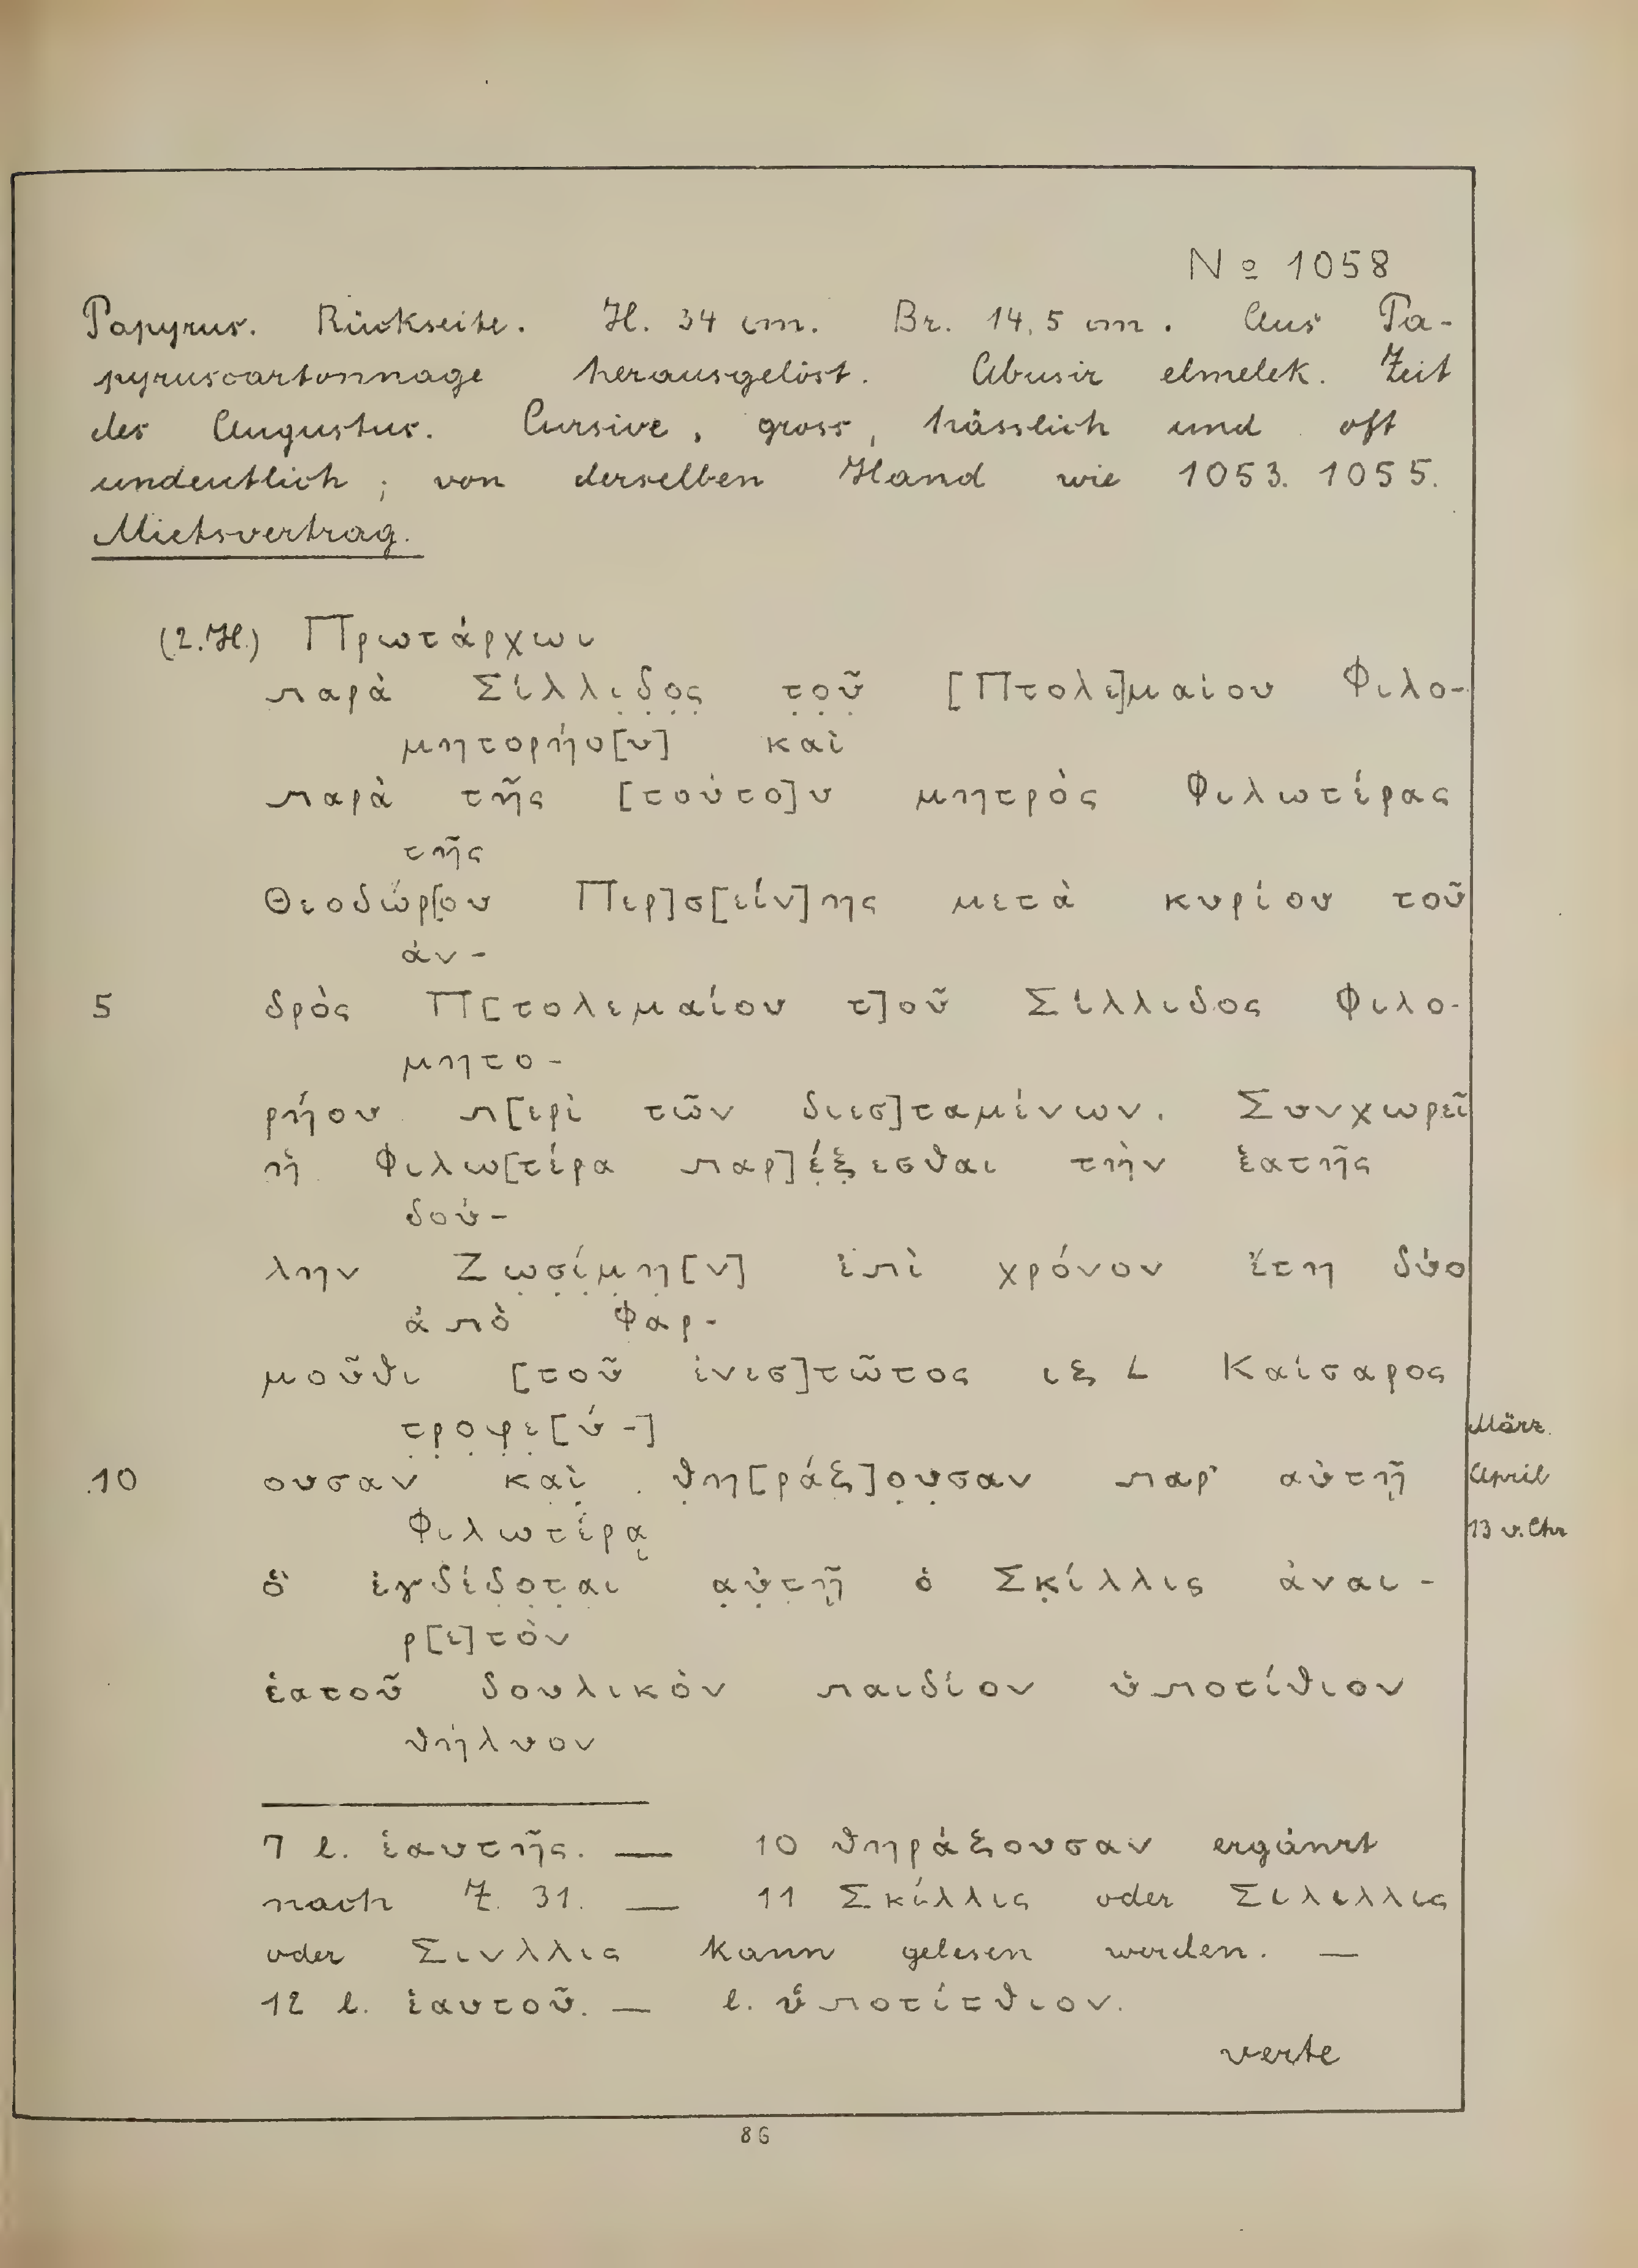 No 1058
Papyrus. Rückseite. H. 34 cm. Br. 14,5 cm. Aus Pa-
pyruscartonnage herausgelöst. Abusir elmelek. Zeit
des Augustus. Cursive, gross, hässlich und oft
undeutlich; von derselben Hand wie 1053. 1055.
Mietsvertrag.
(2.H.) Πρωτάρχωι
παρὰ Σίλλιδ̣ο̣ς̣ τ̣ο̣ῦ̣ [Πτολε]μαίου Φιλο-
μητορήο[υ] καὶ
παρὰ τῆς [τούτο]υ μητρὸς Φιλωτέρας
τῆς
Θεοδώρ[ου Περ]σ[είν]ης μετὰ κυρίου τοῦ
ἀν-
5 δρὸς Π[τολεμαίου τ]οῦ Σίλλιδος Φιλο-
μητο-
ρήου π[ερὶ τῶν διεσ]ταμένων. Συνχωρεῖ
ἡ Φιλω[τέρα παρ]έ̣ξ̣εσθαι τὴν ἑατῆς
δού-
λην Ζω̣σ̣ί̣μ̣η̣[ν] ἐπὶ χρόνον ἔτη δύο
ἀπὸ Φαρ-
μοῦθι [τοῦ ἐνεσ]τῶτος ιξ L Καίσαρος
τρ̣ο̣φ̣ε̣[ύ-]
März
10 ουσαν κα̣ὶ̣ θ̣η[ράξ]ο̣υ̣σαν παρ' αὑτῇ
April
Φιλωτέρᾳ
13 v. Chr
ὃ ἐγδίδ̣ο̣τ̣αι α̣ὐ̣τ̣ῇ ὁ Σκ̣ίλλις ἀναι-
ρ[ε]τὸν
ἑατοῦ δουλικὸν παιδίον ὑποτίθιον
θήλυον
7 l. ἑαυτῆς. — 10 θηράξουσαν ergänzt
nach Z. 31. — 11 Σκίλλις oder Σιλιλλις
oder Σινλλις kann gelesen werden. —
12 l. ἑαυτοῦ. — l. ὑποτίτθιον.
verte
86